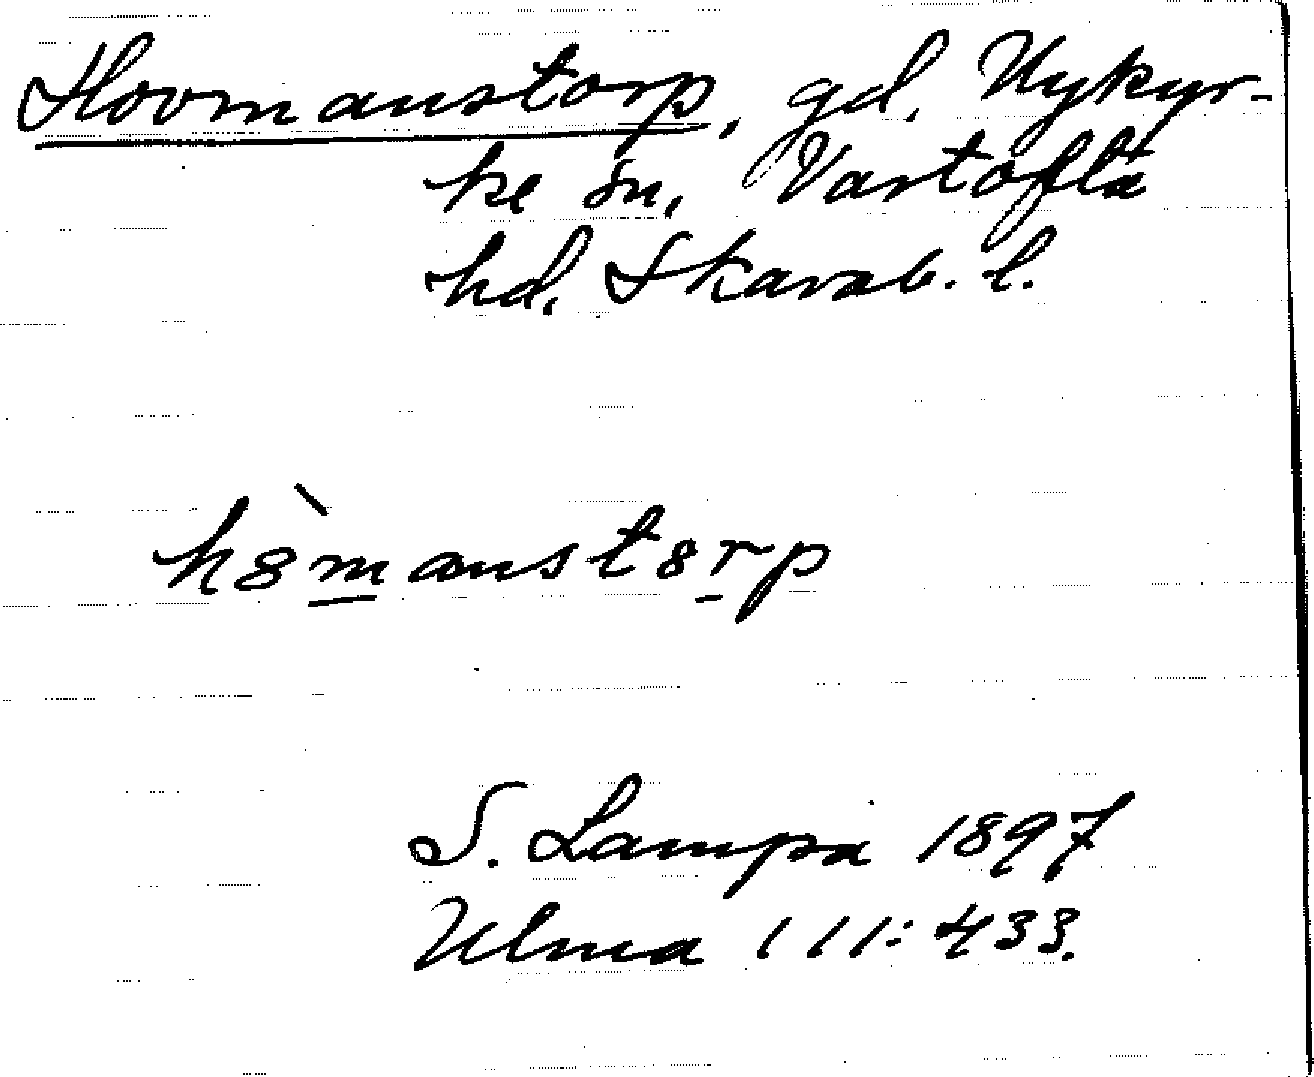 Hovmanstorp, gd. Nykyr-
ke sn, Vartofta
hd. Skarab. l.
h8̀manst8rp
S. Lampa 1897
Ulma 111:433.